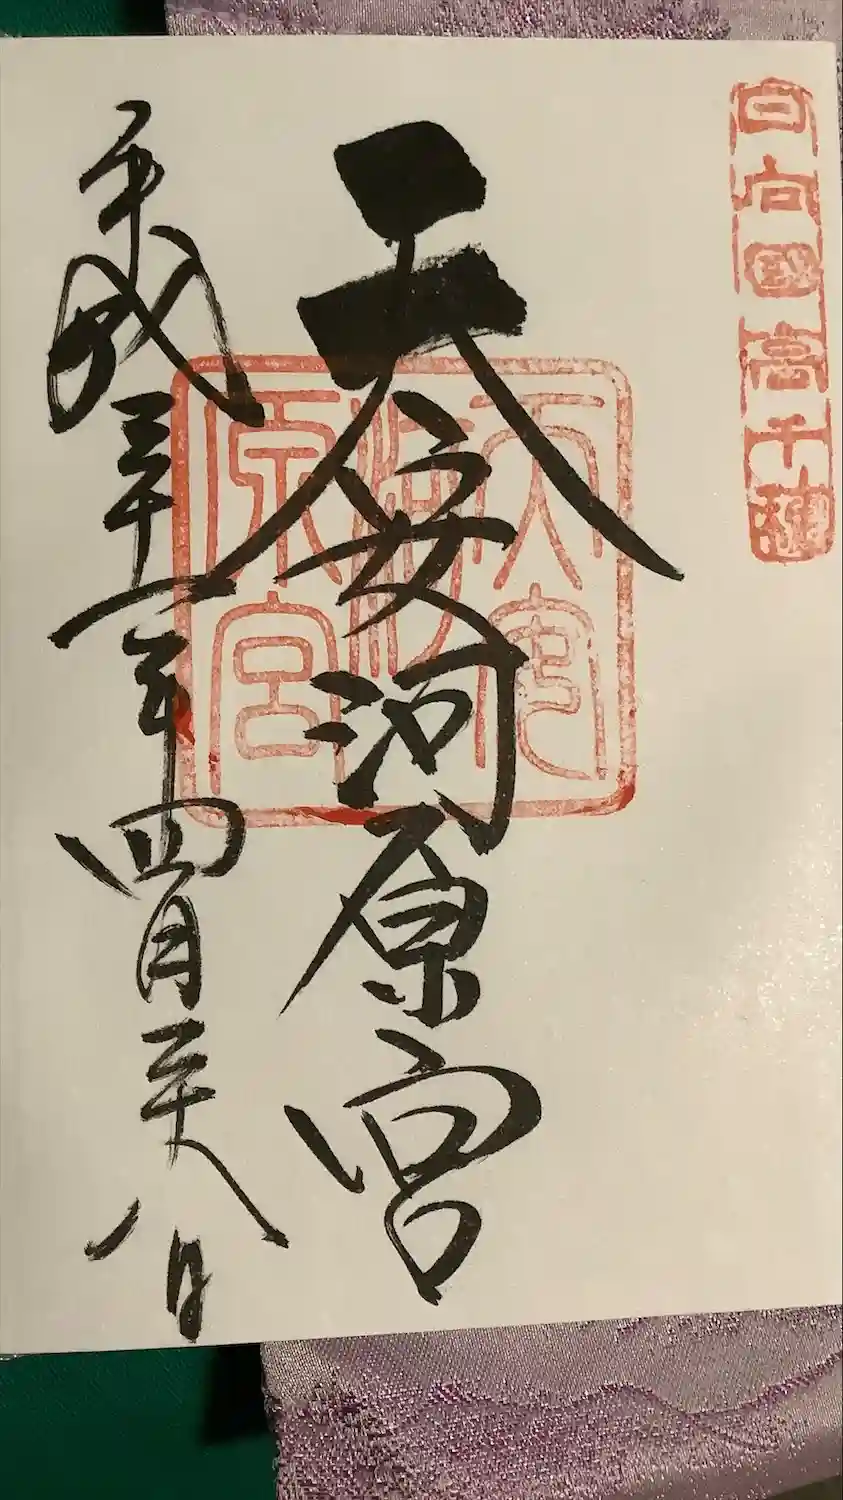 日向國高千穂
天安河原宮
天安
河
原宮
平成三十一年四月二十八日